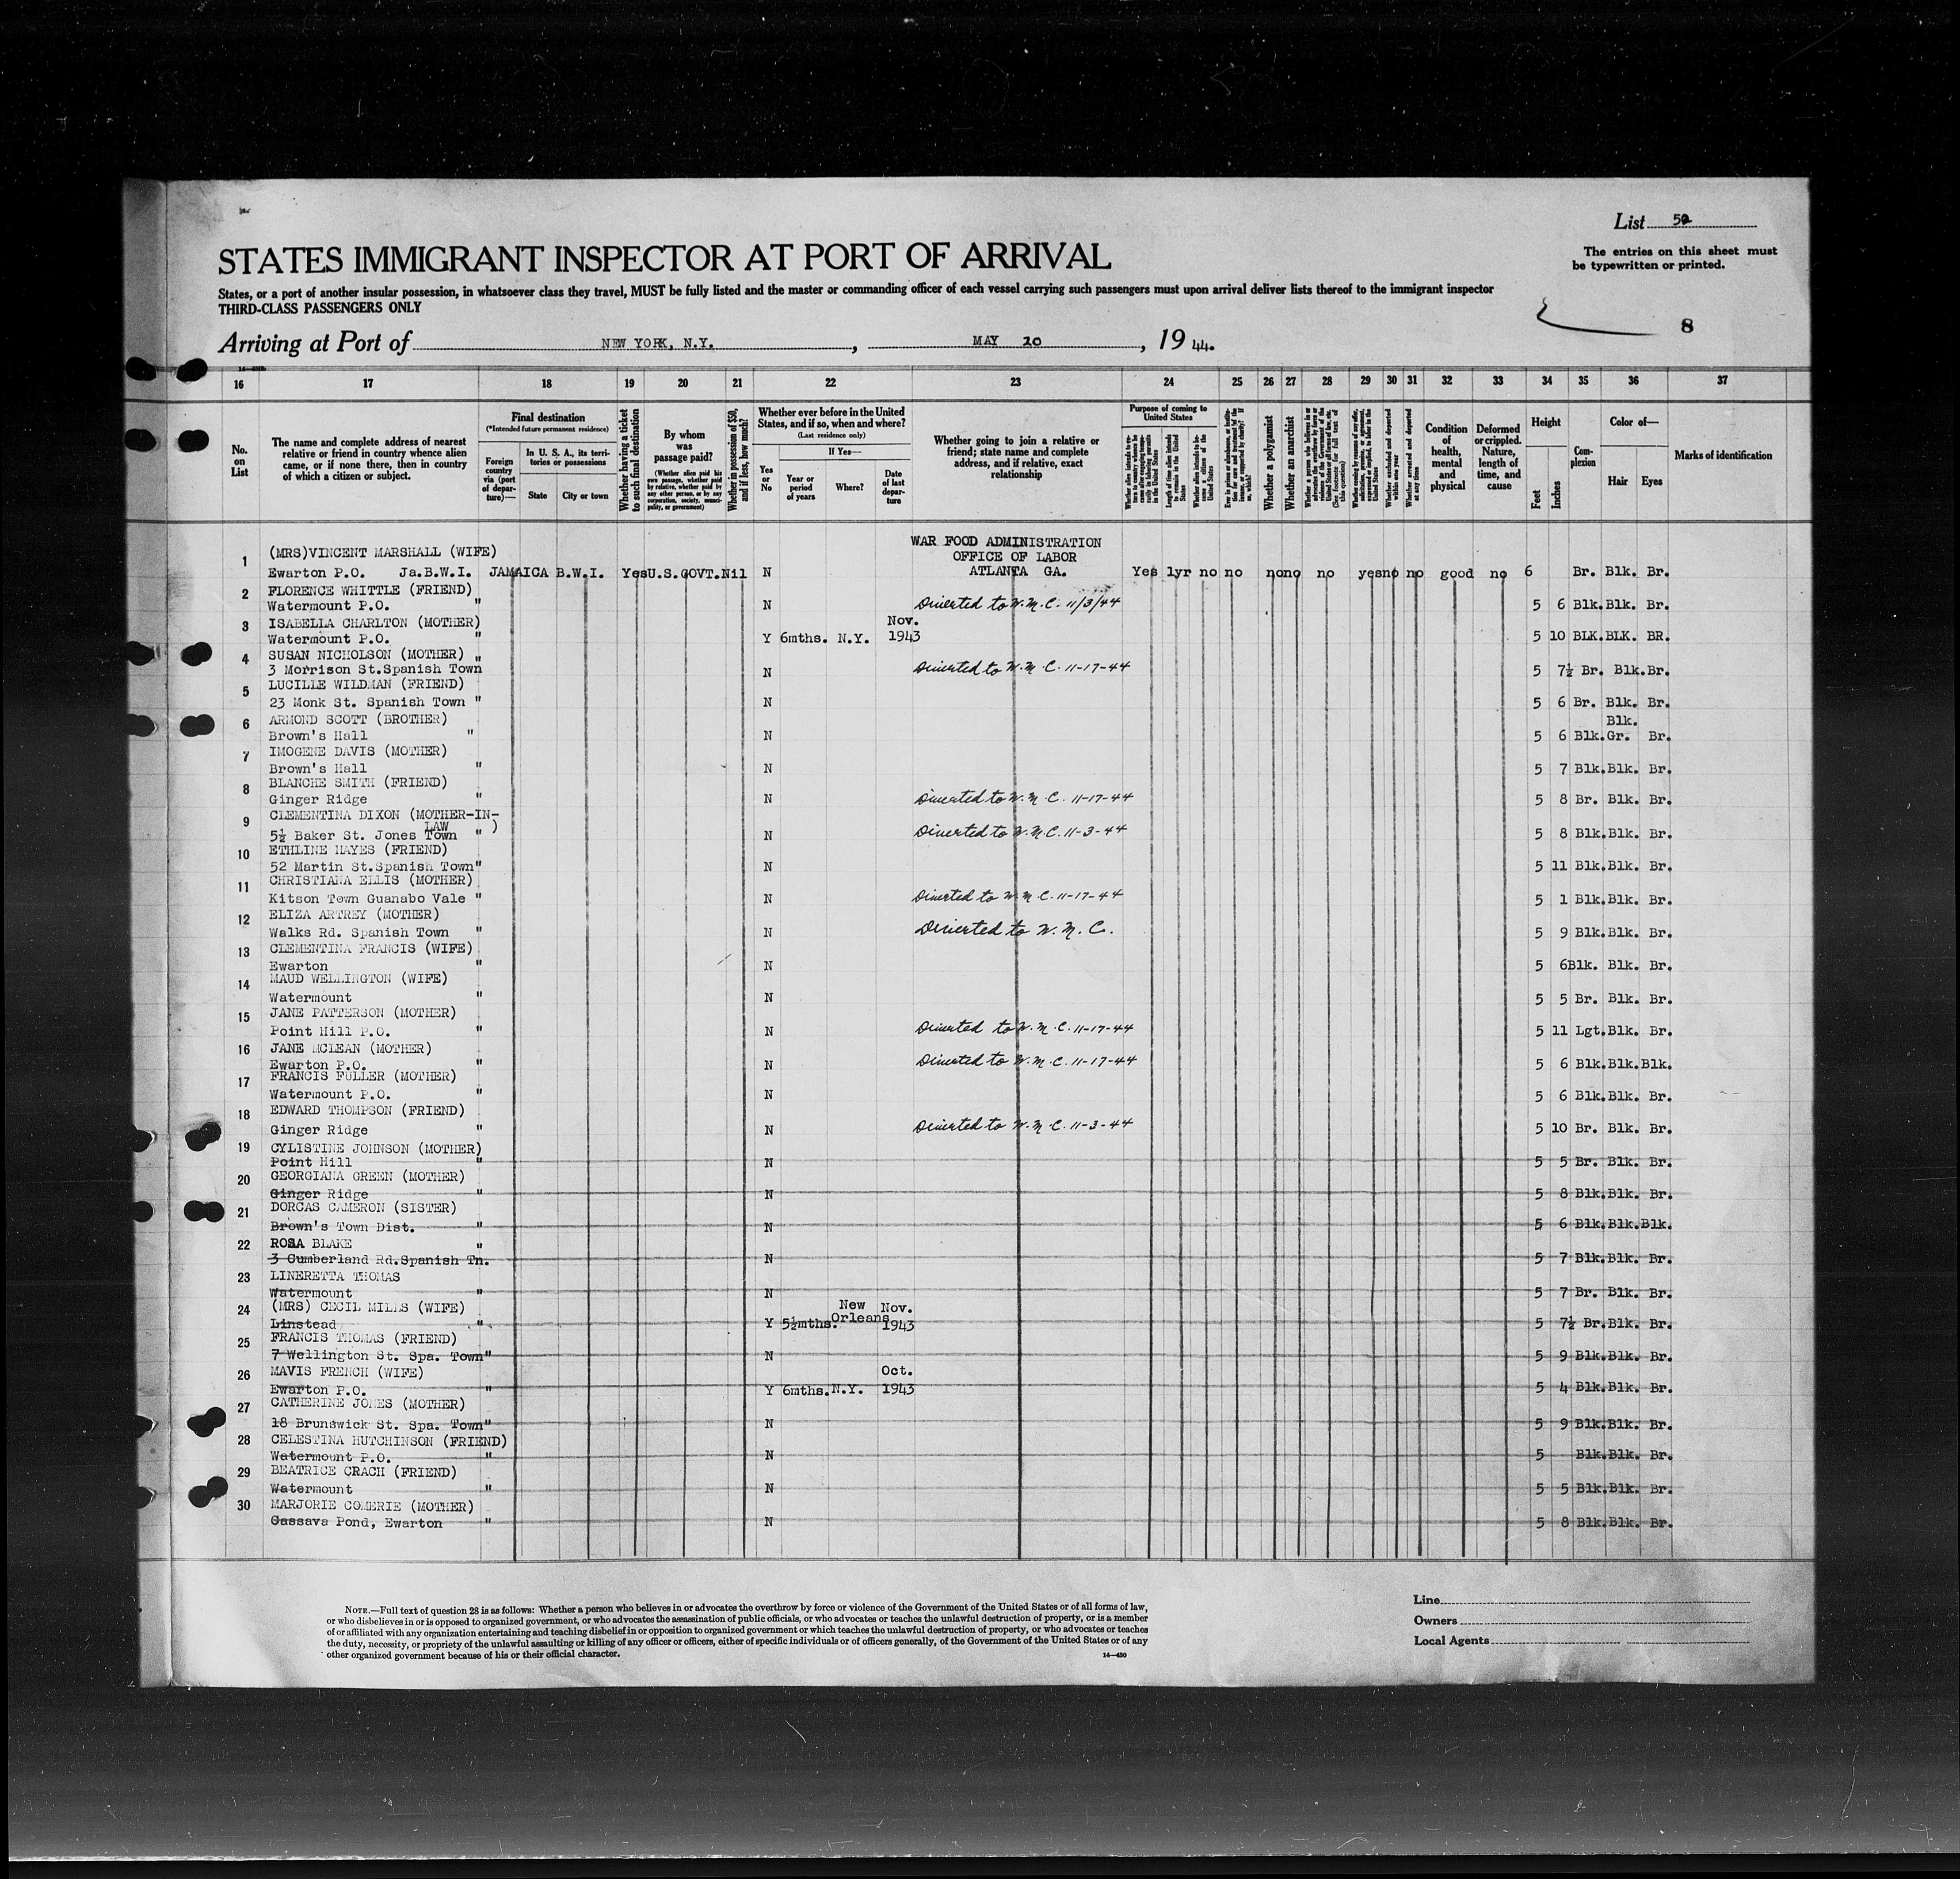 List 52
STATES IMMIGRANT INSPECTOR AT PORT OF ARRIVAL
The entries on this sheet must
be typewritten or printed.
States, or a port of another insular possession, in whatsoever class they travel, MUST be fully listed and the master or commanding officer of each vessel carrying such passengers must upon arrival deliver lists thereof to the immigrant inspector
THIRD-CLASS PASSENGERS ONLY
8
Arriving at Port of NEW YORK, N.Y., MAY 20, 1944.
16 17 18 19 20 21 22 23 24 25 26 27 28 29 30 31 32 33 34 35 36 37
No. on List
The name and complete address of nearest relative or friend in country whence alien came, or if none there, then in country of which a citizen or subject.
Final destination
(*Intended future permanent residence)
Foreign country via (port of departure)—
In U. S. A., its territories or possessions
State
City or town
Whether having a ticket to such final destination
By whom was passage paid?
(Whether alien paid his own passage, whether paid by relative, whether paid by any other person, or by any corporation, society, municipality, or government)
Whether in possession of $50, and if less, how much?
Whether ever before in the United States, and if so, when and where?
(Last residence only)
Yes or No
If Yes—
Year or period of years
Where?
Date of last departure
Whether going to join a relative or friend; state name and complete address, and if relative, exact relationship
Purpose of coming to United States
Length of time alien intends to remain in the United States
Whether a polygamist
Whether an anarchist
Whether excluded and deported within one year
Whether arrested and deported at any time
Condition of health, mental and physical
Deformed or crippled. Nature, length of time, and cause
Height
Feet
Inches
Complexion
Color of—
Hair
Eyes
Marks of identification
WAR FOOD ADMINISTRATION
OFFICE OF LABOR
ATLANTA GA.
1 (MRS)VINCENT MARSHALL (WIFE)
Ewarton P.O. Ja.B.W.I. JAMAICA B.W.I. Yes U.S.GOVT. Nil N Yes 1yr no no no no no yes no no good no 6 Br. Blk. Br.
2 FLORENCE WHITTLE (FRIEND)
Watermount P.O. " N Diverted to W.M.C. 11/3/44 5 6 Blk. Blk. Br.
3 ISABELLA CHARLTON (MOTHER) Nov.
Watermount P.O. " Y 6mths. N.Y. 1943 5 10 BLK. BLK. BR.
4 SUSAN NICHOLSON (MOTHER) "
3 Morrison St.Spanish Town N Diverted to W.M.C. 11-17-44 5 7½ Br. Blk. Br.
5 LUCILLE WILDMAN (FRIEND)
23 Monk St. Spanish Town " N 5 6 Br. Blk. Br.
6 ARMOND SCOTT (BROTHER) Blk.
Brown's Hall " N 5 6 Blk. Gr. Br.
7 IMOGENE DAVIS (MOTHER)
Brown's Hall " N 5 7 Blk. Blk. Br.
8 BLANCHE SMITH (FRIEND)
Ginger Ridge " N Diverted to W.M.C. 11-17-44 5 8 Br. Blk. Br.
9 CLEMENTINA DIXON (MOTHER-IN-
LAW )
5½ Baker St. Jones Town " N Diverted to W.M.C. 11-3-44 5 8 Blk. Blk. Br.
10 ETHLINE HAYES (FRIEND)
52 Martin St.Spanish Town" N 5 11 Blk. Blk. Br.
11 CHRISTIANA ELLIS (MOTHER)
Kitson Town Guanabo Vale " N Diverted to W.M.C. 11-17-44 5 1 Blk. Blk. Br.
12 ELIZA ARTREY (MOTHER)
Walks Rd. Spanish Town " N Diverted to W.M.C. 5 9 Blk. Blk. Br.
13 CLEMENTINA FRANCIS (WIFE)
Ewarton " N 5 6 Blk. Blk. Br.
14 MAUD WELLINGTON (WIFE)
Watermount " N 5 5 Br. Blk. Br.
15 JANE PATTERSON (MOTHER)
Point Hill P.O. " N Diverted to W.M.C. 11-17-44 5 11 Lgt. Blk. Br.
16 JANE MCLEAN (MOTHER)
Ewarton P.O. " N Diverted to W.M.C. 11-17-44 5 6 Blk. Blk. Blk.
17 FRANCIS FULLER (MOTHER)
Watermount P.O. " N 5 6 Blk. Blk. Br.
18 EDWARD THOMPSON (FRIEND)
Ginger Ridge " N Diverted to W.M.C. 11-3-44 5 10 Br. Blk. Br.
19 CYLISTINE JOHNSON (MOTHER)
Point Hill " N 5 5 Br. Blk. Br.
20 GEORGIANA GREEN (MOTHER)
Ginger Ridge " N 5 8 Blk. Blk. Br.
21 DORCAS CAMERON (SISTER)
Brown's Town Dist. " N 5 6 Blk. Blk. Blk.
22 ROSA BLAKE "
3 Cumberland Rd.Spanish Tn. N 5 7 Blk. Blk. Br.
23 LINERETTA THOMAS
Watermount " N 5 7 Br. Blk. Br.
24 (MRS) CECIL MILLS (WIFE) New Orleans Nov.
Linstead " Y 5½mths. 1943 5 7½ Br. Blk. Br.
25 FRANCIS THOMAS (FRIEND)
7 Wellington St. Spa. Town" N 5 9 Blk. Blk. Br.
26 MAVIS FRENCH (WIFE) Oct.
Ewarton P.O. " Y 6mths. N.Y. 1943 5 4 Blk. Blk. Br.
27 CATHERINE JONES (MOTHER)
18 Brunswick St. Spa. Town" N 5 9 Blk. Blk. Br.
28 CELESTINA HUTCHINSON (FRIEND)
Watermount P.O. " N 5 Blk. Blk. Br.
29 BEATRICE CRACH (FRIEND)
Watermount " N 5 5 Blk. Blk. Br.
30 MARJORIE COMERIE (MOTHER)
Cassava Pond, Ewarton " N 5 8 Blk. Blk. Br.
NOTE.—Full text of question 28 is as follows: Whether a person who believes in or advocates the overthrow by force or violence of the Government of the United States or of all forms of law,
or who disbelieves in or is opposed to organized government, or who advocates the assassination of public officials, or who advocates or teaches the unlawful destruction of property, or is a member
of or affiliated with any organization entertaining and teaching disbelief in or opposition to organized government or which teaches the unlawful destruction of property, or who advocates or teaches
the duty, necessity, or propriety of the unlawful assaulting or killing of any officer or officers, either of specific individuals or of officers generally, of the Government of the United States or of any
other organized government because of his or their official character.
14—430
Line
Owners
Local Agents